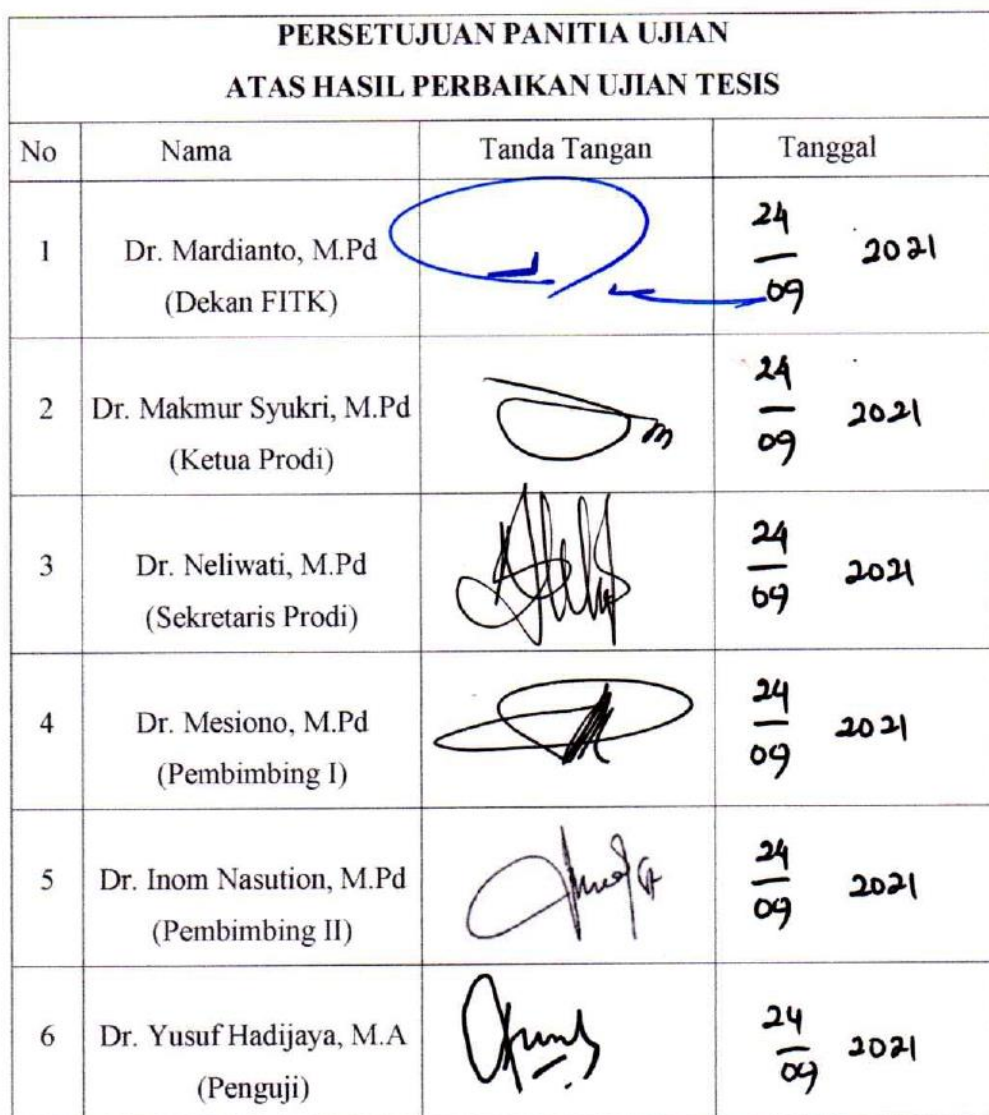 PERSETUJUAN PANITIA UJIAN
ATAS HASIL PERBAIKAN UJIAN TESIS
No Nama Tanda Tangan Tanggal
1 Dr. Mardianto, M.Pd (Dekan FITK) 24/09 2021
2 Dr. Makmur Syukri, M.Pd (Ketua Prodi) 24/09 2021
3 Dr. Neliwati, M.Pd (Sekretaris Prodi) 24/09 2021
4 Dr. Mesiono, M.Pd (Pembimbing I) 24/09 2021
5 Dr. Inom Nasution, M.Pd (Pembimbing II) 24/09 2021
6 Dr. Yusuf Hadijaya, M.A (Penguji) 24/09 2021